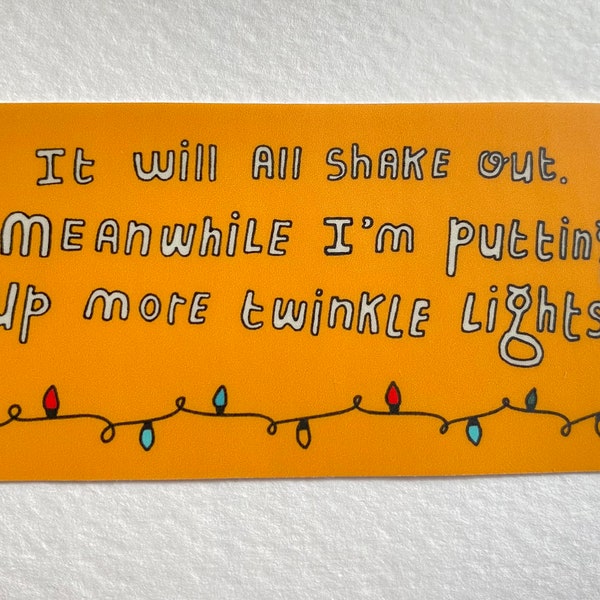 It will All SHAKE Out.
MEANWHiLE I'm puttin'
up more twinkle Lights